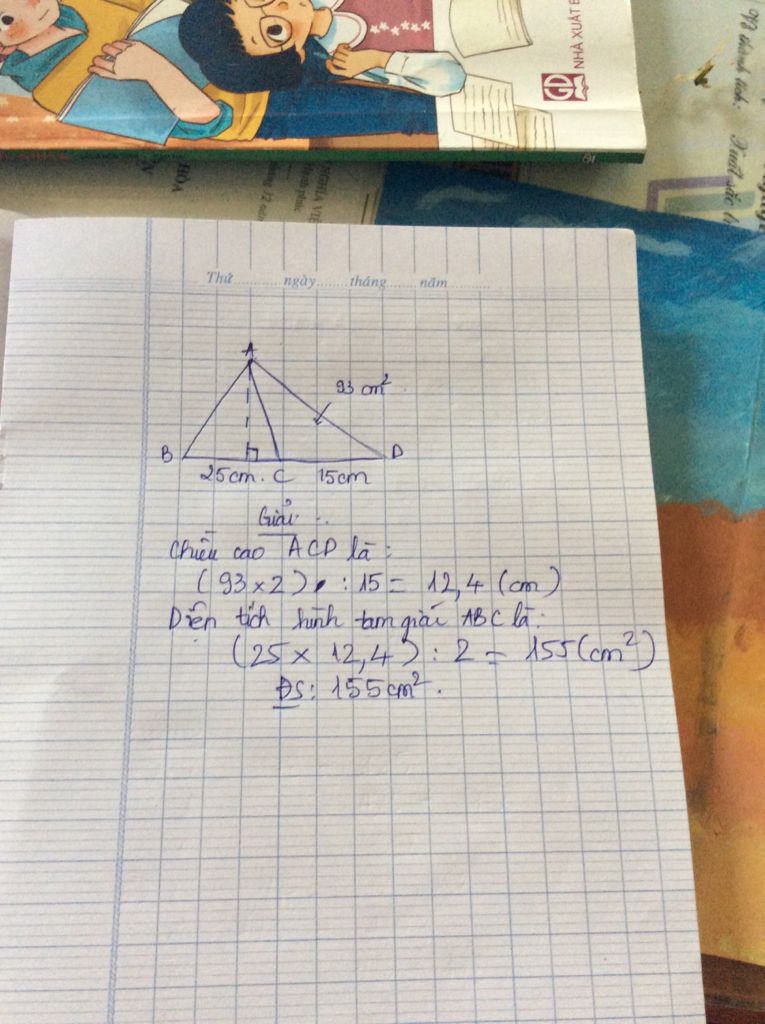 NHÀ XUẤT B
GD
HÒA
Thứ........... ngày........ tháng....... năm...........
A
93 cm²
B
D
25cm. C 15cm
Giải:
Chiều cao ACD là:
(93 x 2) : 15 = 12,4 (cm)
Diện tích hình tam giác ABC là:
(25 x 12,4) : 2 = 155 (cm²)
ĐS: 155cm².